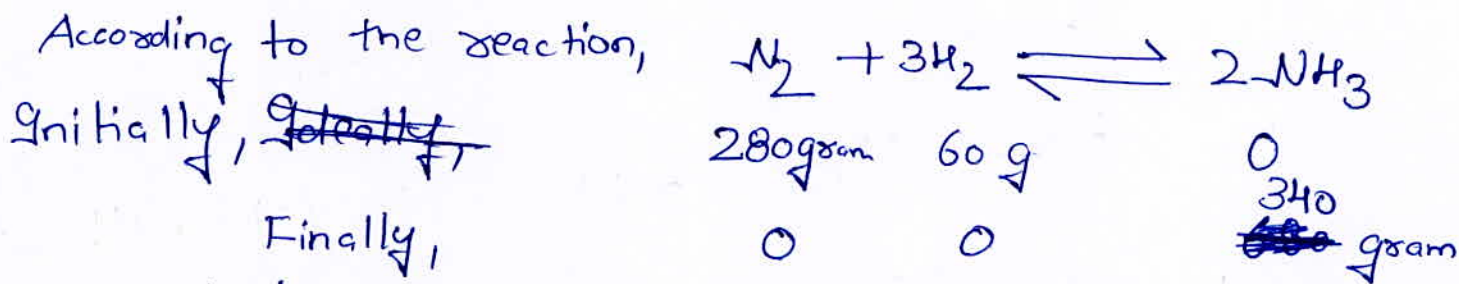 According to the reaction, N₂ + 3H₂ ⇌ 2NH₃
Initially, 280gram 60 g 0
Finally, 0 0 340 gram